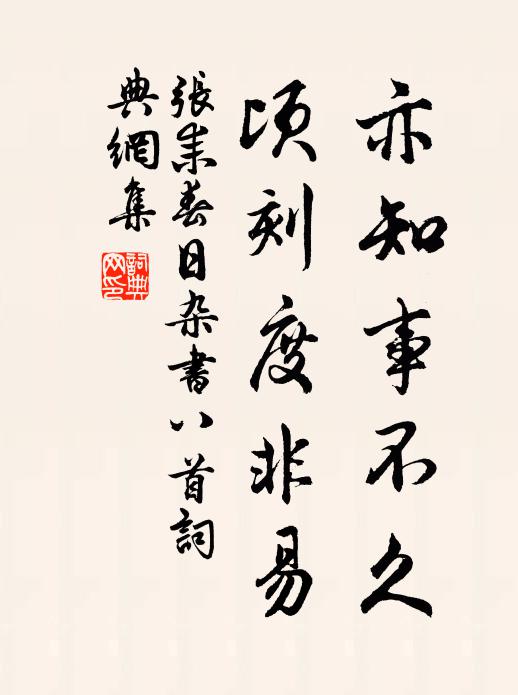 亦知事不久
頃刻度非易
張耒春日杂書八首詞
典網集
詞典网印